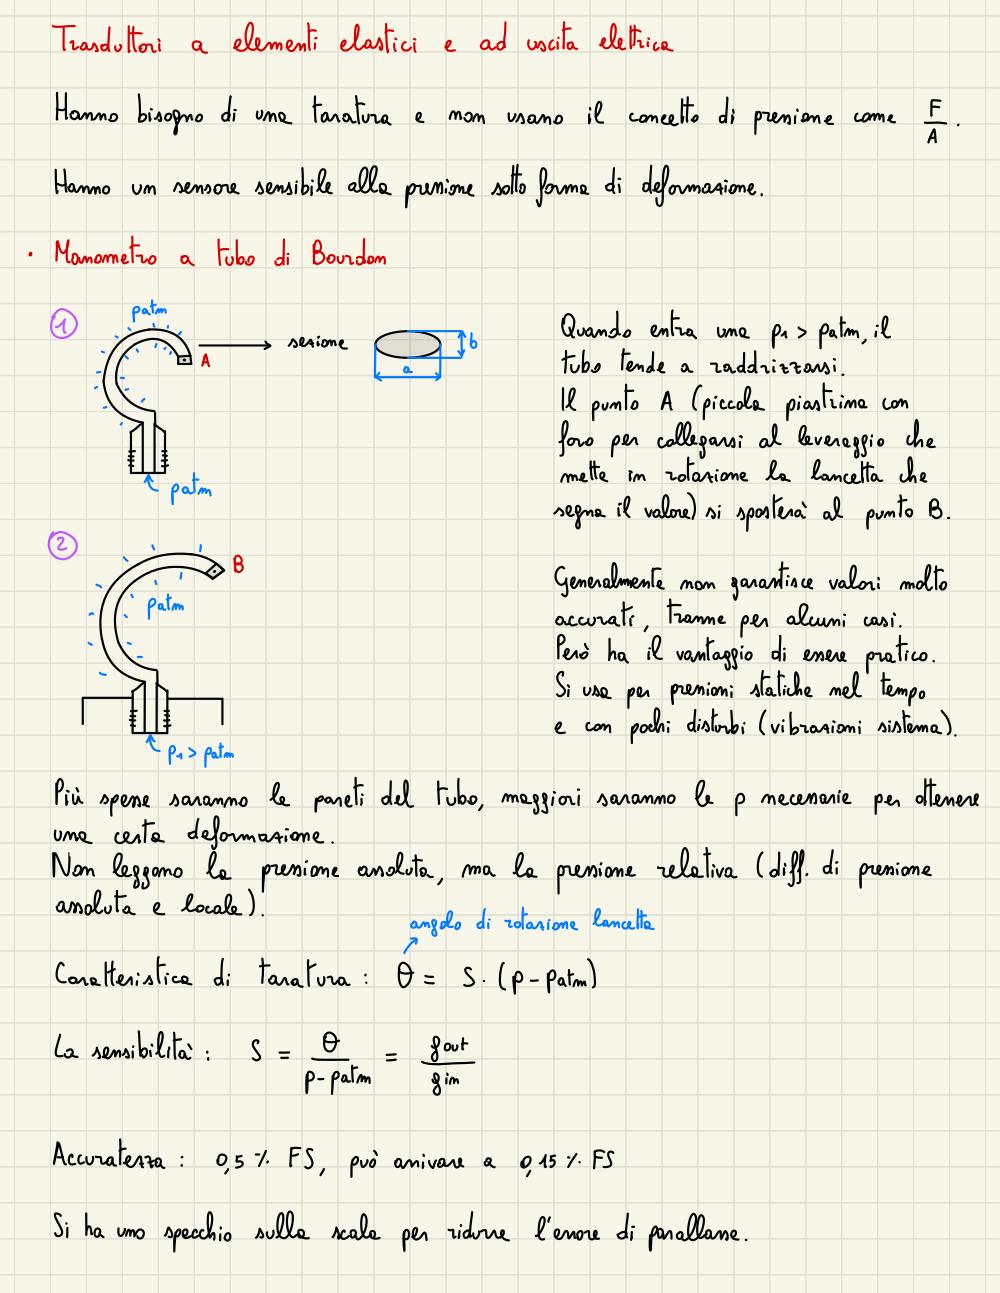 Trasduttori a elementi elastici e ad uscita elettrica
Hanno bisogno di una taratura e non usano il concetto di pressione come F/A.
Hanno un sensore sensibile alla pressione sotto forma di deformazione.
• Manometro a tubo di Bourdon
1
patm
A
sezione
b
a
patm
Quando entra una p1 > patm, il
tubo tende a raddrizzarsi.
Il punto A (piccola piastrina con
foro per collegarsi al leveraggio che
mette in rotazione la lancetta che
segna il valore) si sposterà al punto B.
2
B
patm
p1 > patm
Generalmente non garantisce valori molto
accurati, tranne per alcuni casi.
Però ha il vantaggio di essere pratico.
Si usa per pressioni statiche nel tempo
e con pochi disturbi (vibrazioni sistema).
Più spesse saranno le pareti del tubo, maggiori saranno le p necessarie per ottenere
una certa deformazione.
Non leggono la pressione assoluta, ma la pressione relativa (diff. di pressione
assoluta e locale).
angolo di rotazione lancetta
Caratteristica di taratura: θ = S · (p - patm)
La sensibilità: S = θ/(p - patm) = gout/gin
Accuratezza: 0,5 % FS, può arrivare a 0,15 % FS
Si ha uno specchio sulla scala per ridurre l'errore di parallasse.